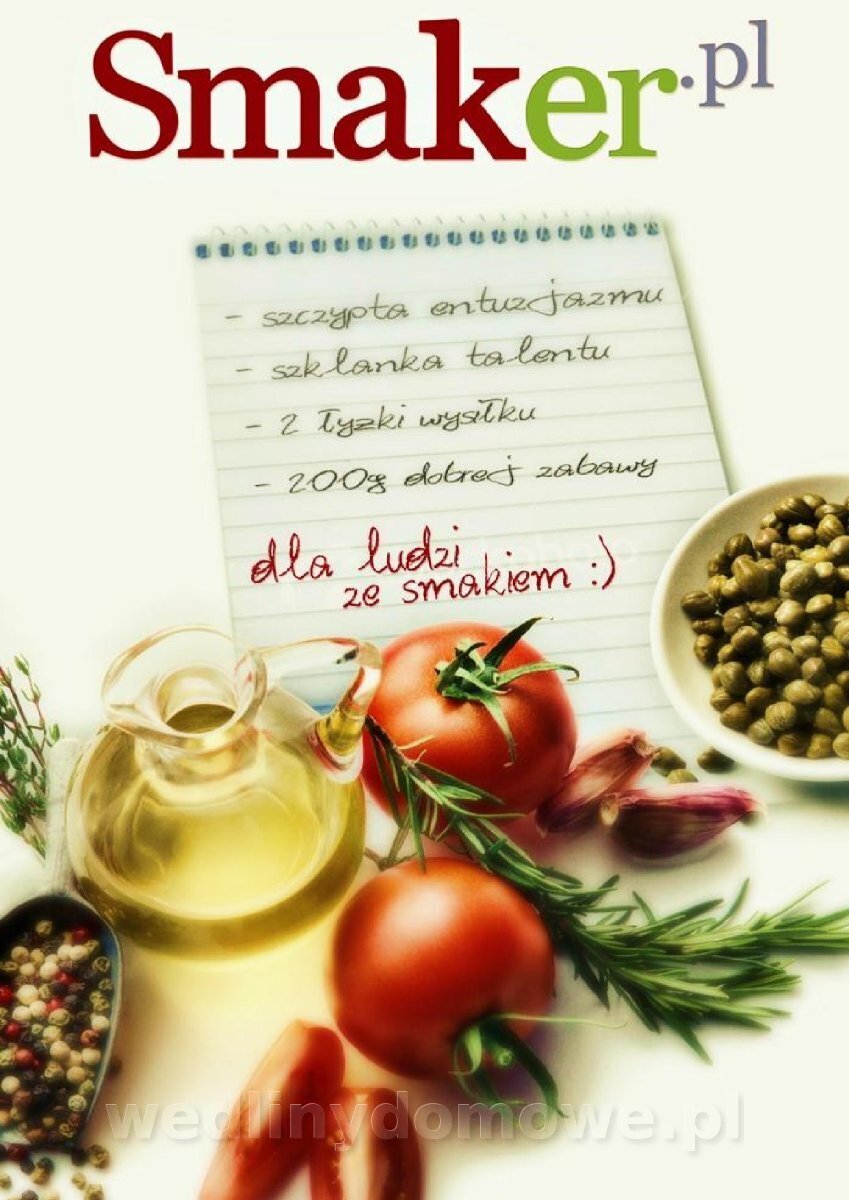 Smaker.pl
- szczypta entuzjazmu
- szklanka talentu
- 2 łyżki wysiłku
- 200g dobrej zabawy
dla ludzi
ze smakiem :)
wedlinydomowe.pl